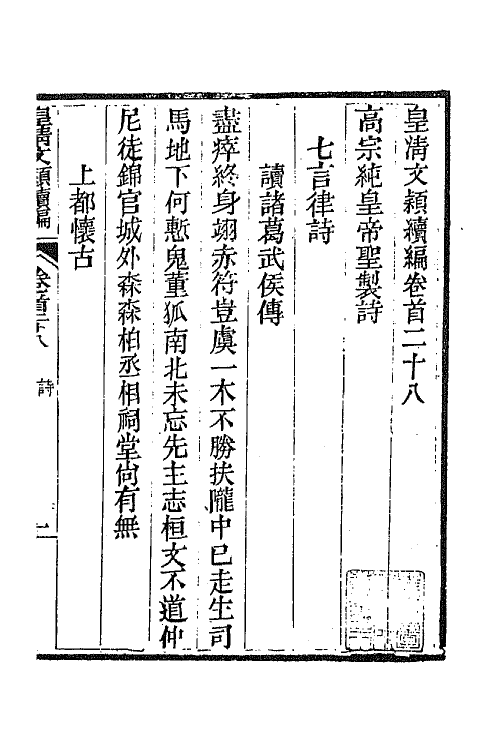 皇清文穎續編卷首二十八
高宗純皇帝聖製詩
七言律詩
讀諸葛武侯傳
盡瘁終身翊赤符豈虞一木不勝扶隴中已走生司
馬地下何慙鬼董狐南北未忘先主志桓文不道仲
尼徒錦官城外森森柏丞相祠堂尙有無
上都懷古
皇清文穎續編
卷首二十八
詩
一